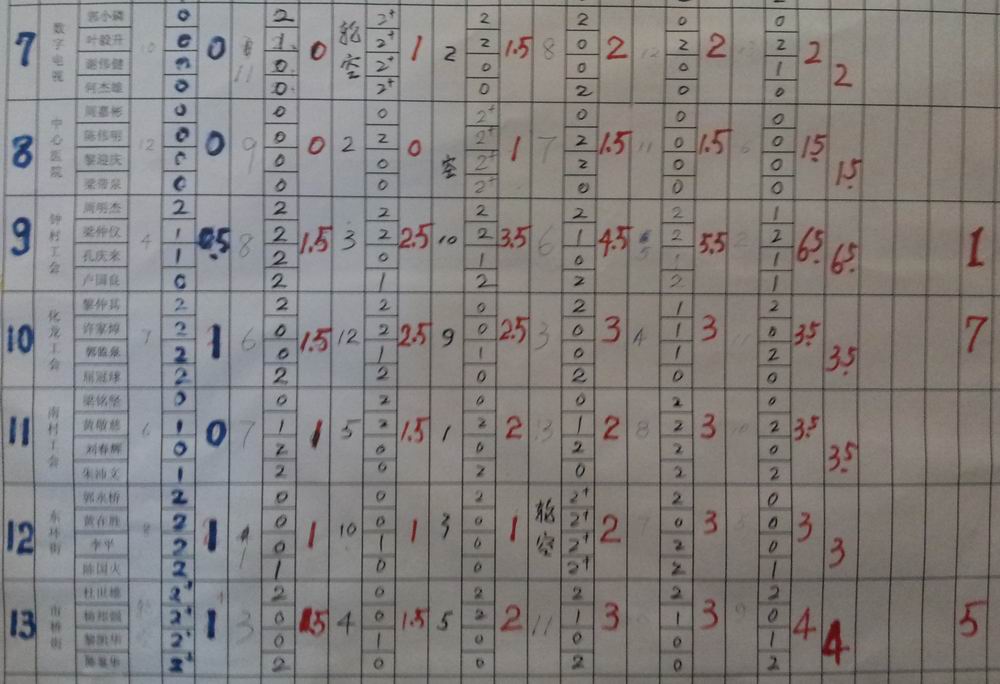 7 数字电视 郭小磷 0 2 轮空 2+ 2 2 0 0
叶毅升 0 0 1 0 2+ 1 2 2 1.5 8 0 2 12 2 2 2 2
谢伟健 0 11 0 2+ 0 0 0 1
何杰雄 0 0 2+ 0 2 0 0
8 中心医院 周嘉彬 0 0 0 2+ 0 0 0
陈伟明 0 0 9 0 0 2 2 0 2+ 1 7 2 1.5 11 0 1.5 0 1.5 1.5
黎迎庆 0 0 0 空 2+ 2 0 0
梁带泉 0 0 0 2+ 0 0 0
9 钟村工会 周明杰 2 2 2 2 2 2 1
梁仲仪 4 1 0.5 8 2 1.5 3 2 2.5 10 2 3.5 6 1 4.5 2 5.5 2 6.5 6.5 1
孔庆来 1 2 0 1 0 5 1 1
卢国良 0 2 1 2 2 2 1
10 化龙工会 黎仲其 2 2 2 0 2 1 2
许家博 7 2 1 6 0 1.5 12 2 2.5 9 0 2.5 3 0 3 4 1 3 0 3.5 3.5 7
郭监泉 2 0 1 1 0 1 2
屈冠球 2 2 2 0 2 0 0
11 南村工会 梁铭坚 0 0 2 0 0 2 0
黄敬慈 6 1 0 7 1 1 5 2 1.5 1 2 2 3 1 2 8 2 3 2 3.5 3.5
刘春辉 0 2 0 0 2 0 0
朱沛文 1 2 0 2 0 2 2
12 东环街 郭永桥 2 0 0 2 轮空 2+ 2 0
黄在胜 8 2 1 0 1 10 0 1 3 0 1 2+ 2 0 3 0 3 3
李平 2 0 1 0 2+ 2 0
陈国火 2 1 0 0 2+ 2 1
13 市桥街 杜世雄 2+ 2 0 2 2 2 2
2+ 1 3 0 1.5 4 0 1.5 5 2 2 11 1 3 1 3 0 4 4 5
黎凯华 2+ 0 1 0 0 0 1
2+ 2 0 0 2 0 2